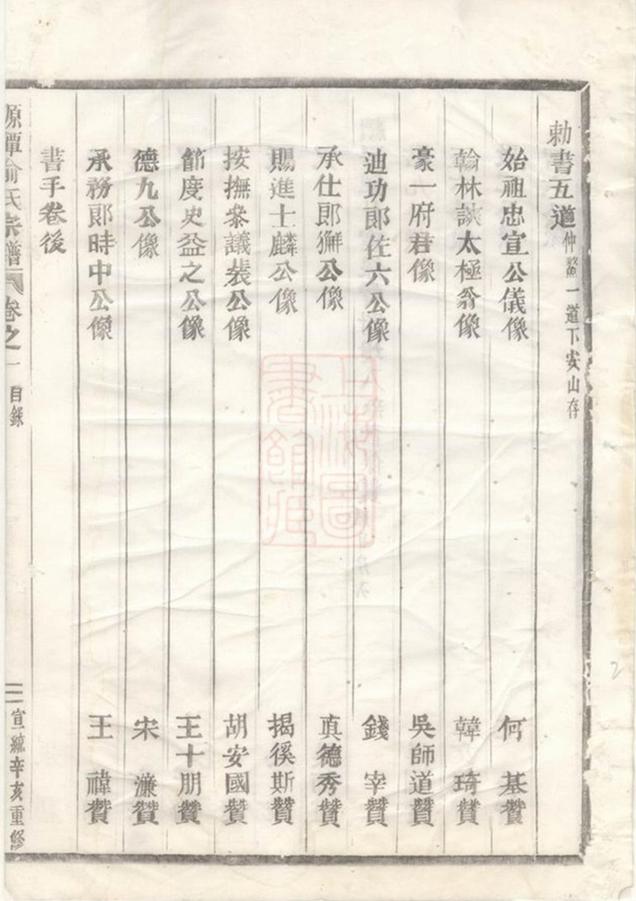 勅書五道 一道下安山存
始祖忠宣公儀像 何基贊
翰林談太極翁像 韓琦贊
豪一府君像 吳師道贊
迪功郎佐六公像 錢宰贊
承仕郎獬公像 真德秀贊
賜進士麟公像 揭徯斯贊
按撫叅議裝公像 胡安國贊
節度史益之公像 王十朋贊
德九公像 宋濂贊
承務郎時中公像 王禕贊
書手卷後
源潭俞氏宗譜 卷之一 目錄 二 宣統辛亥重修
上海圖書館藏